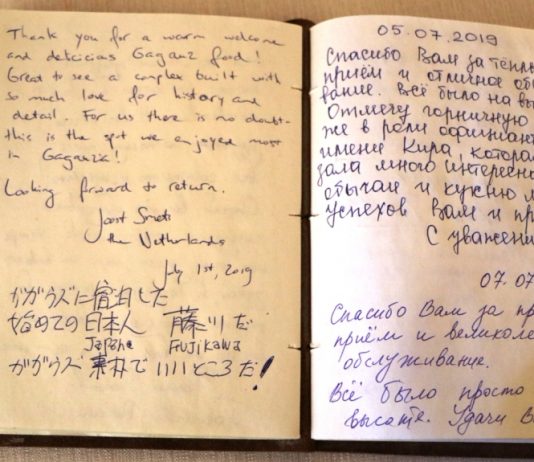 Thank you for a warm welcome
and delicious Gagauz food!
Great to see a complex built with
so much love for history and
detail. For us there is no doubt-
this is the spot we enjoyed most
in Gagauzia!
Looking forward to return.
Joost Smets
the Netherlands
July 1st, 2019
ガガウズに宿泊した
始めての日本人 藤川だ
Japane FUJIKAWA
ガガウズ 素朴で いいところだ!
05.07.2019
Спасибо Вам за тёплы
приём и отличное обс
вание. Всё было на вы
Отмечу горничную
же в роли официант
имение Кира, котора
зала много интересн
обычаи и кухню м
успехов Вам и пр
С уважени
07.07
Спасибо Вам за пр
приём и великоле
обслуживание.
Всё было просто
высоте. Удачи В